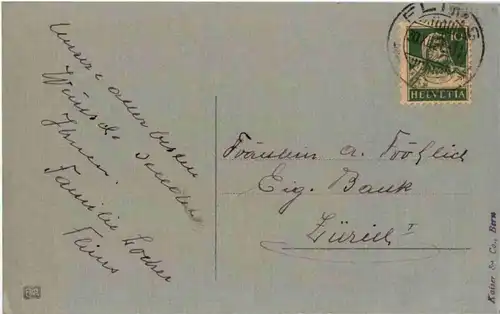 Unsre allerbesten
Wünsche senden
Ihnen.
Familie Locher
Flims
FLIMS
10
HELVETIA
Fräulein A. Fröhlich
Eig. Bank
Zürich I
Kaiser & Co., Bern